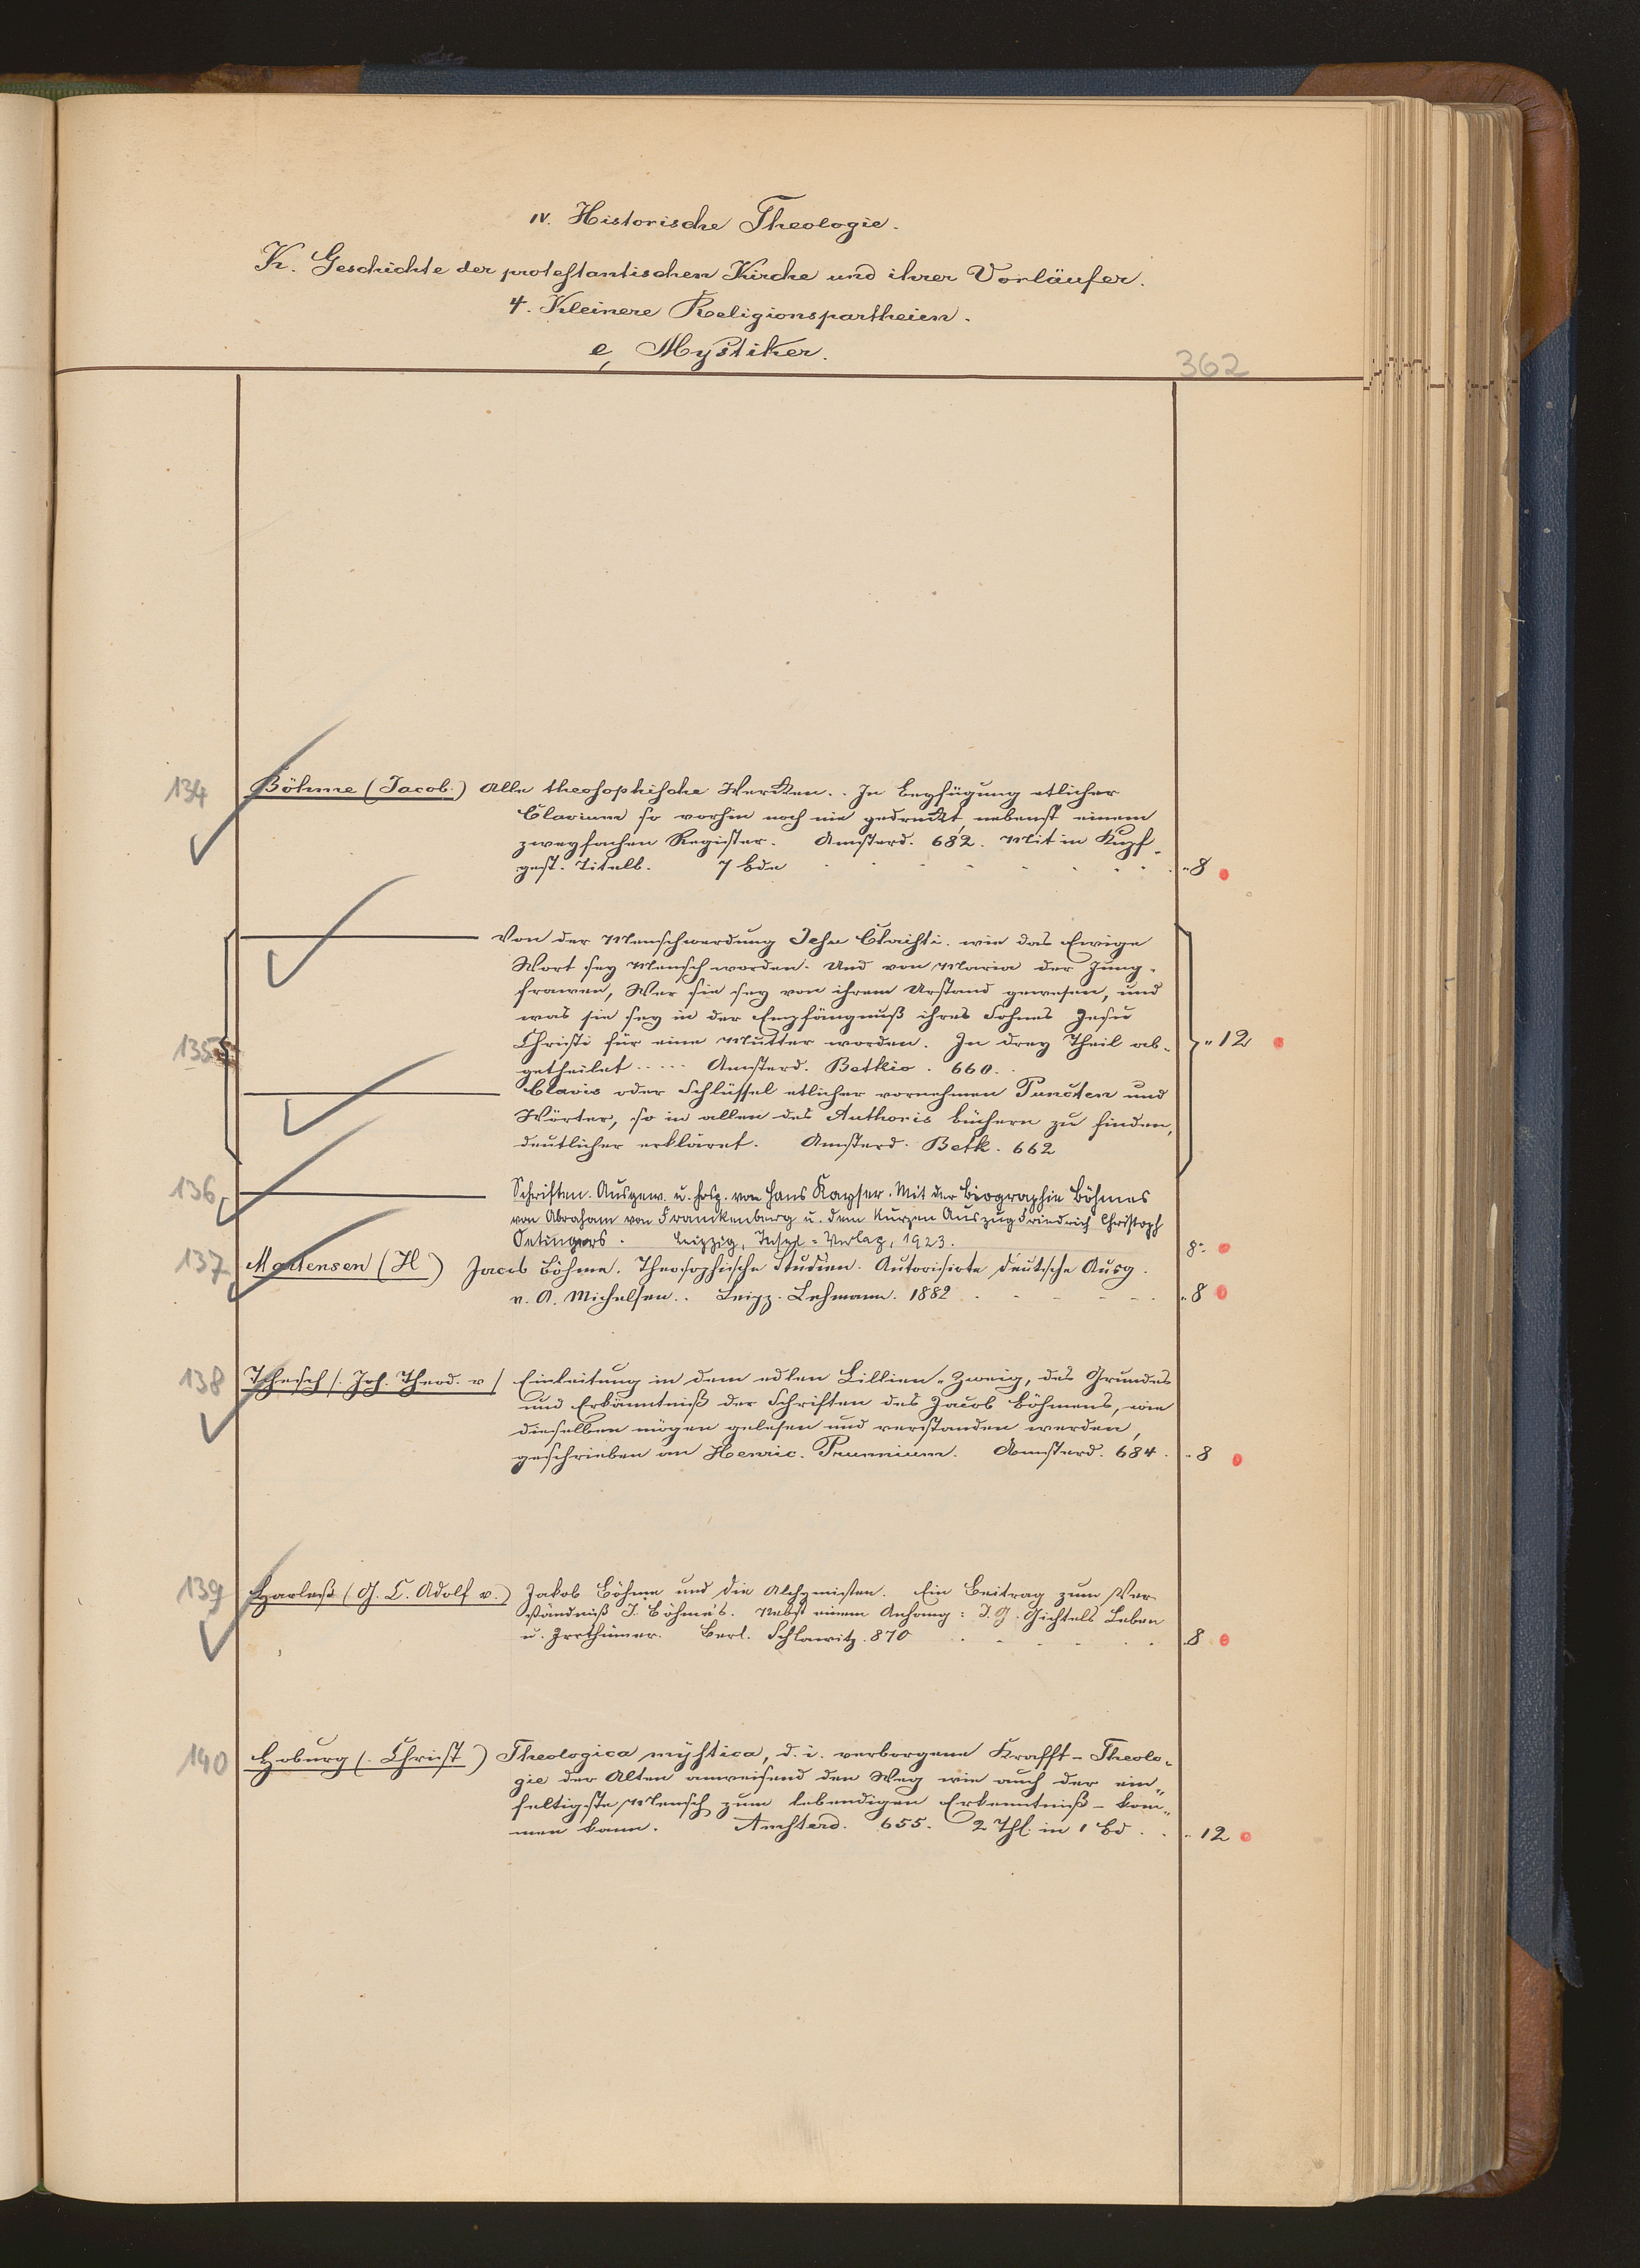 IV. Historische Theologie.
K. Geschichte der protestantischen Kirche und ihrer Vorläufer.
4. Kleinere Religionspartheien.
e, Mystiker.
362
134 Böhme (Jacob.) Alle theosophische Wercken. . In beyfügung etlicher
Clavium so vorhin noch nie gedruckt nebenst einem
zweyfachen Register. Amsterd. 682. Mit in Kupf
gest. Titelb. 7 Bde " 8
Von der Menschwerdung Jesu Christi. wie das Ewige
Wort sey Mensch worden. Und von Maria der Jung-
frawen, Wer sie sey von ihrem Urstand gewesen, und
was sie sey in der Empfängnuß ihres Sohnes Jesu
135 Christi für eine Mutter worden. In drey Theil ab- " 12
getheilet ..... Amsterd. Betkio. 660.
Clavis oder Schlüssel etlicher vornehmen Puncten und
Wörter, so in allen des Authoris büchern zu finden,
deutlicher erkläret. Amsterd. Betk. 662
136 Schriften. Ausgew. u. hrsg. von Hans Kayser. Mit der Biographie Böhmes
von Abraham von Franckenberg u. dem Kurzen Auszug Friedrich Christoph
Oetingers. Leipzig, Insel-Verlag, 1923. 8°
137 Martensen (H) Jacob Böhme. Theosophische Studien. Autorisirte deutsche Ausg.
v. A. Michelsen.. Leipz. Lehmann. 1882 " 8
138 Tschesch (. Joh. Theod. v) Einleitung in dem edlen Lillien-Zweig, des Grundes
und Erkänntniß der Schriften des Jacob Böhmens, wie
dieselben mögen gelesen und verstanden werden,
geschrieben an Henric. Prunnium. Amsterd. 684. " 8
139 Harleß (G. C. Adolf v.) Jakob Böhme und die Alchymisten. Ein Beitrag zum Ver-
ständniß J. Böhme's. Nebst einem Anhang: J. G. Gichtels Leben
u. Irrthümer. Berl. Schlawitz. 870 8
140 Hoburg (. Christ) Theologica mystica, d. i. verborgene Krafft-Theolo-
gie der Alten anweisend den Weg wie auch der ein-
feltigste Mensch zum lebendigen Erkenntniß - kom-
men kann. Amsterd. 655. 2 Thl. in 1 Bd. " 12